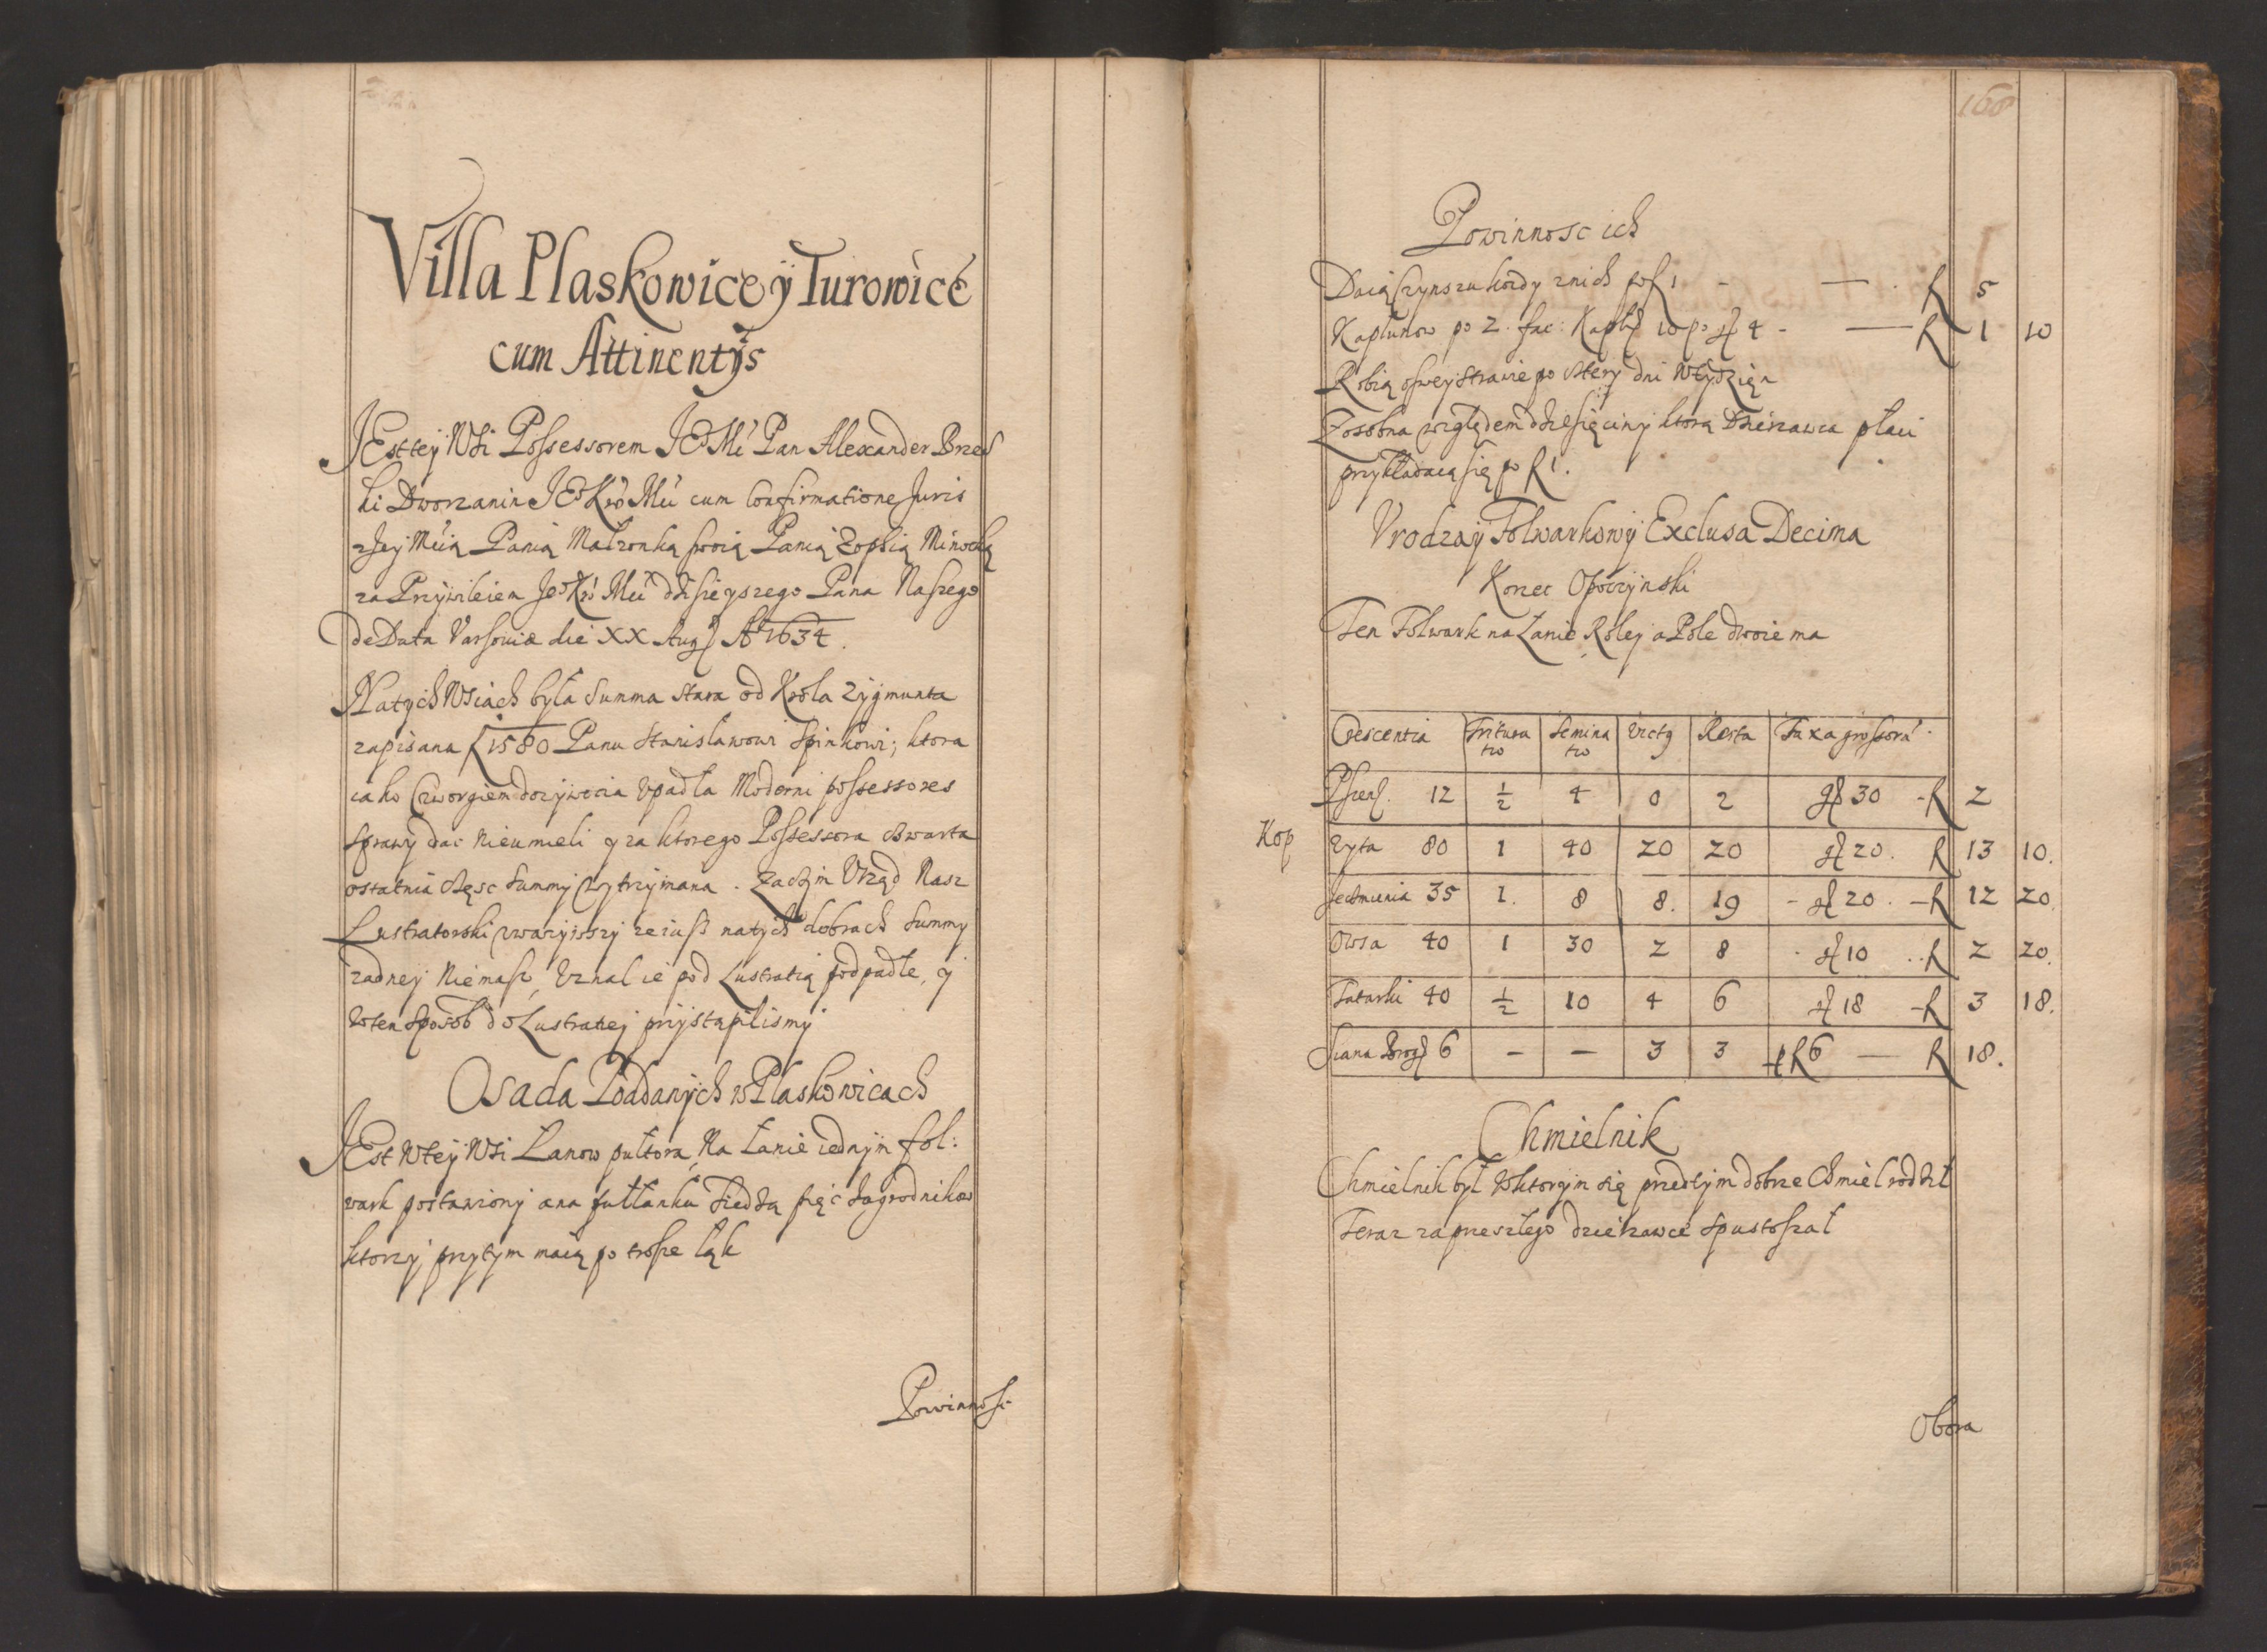 Villa Plaskowice ÿ Turowice
cum Attinentÿs
JEst teÿ Wsi Possessorem JEo Mć Pan Alexander Brzes
ki Dworzanin JEo Kró Mći cum Confirmatione Juris
z Jey Mcią Panią Małżonką swoią Panią Zophią
za Przywileiem Jeo Kró Mći dzisieyszego Pana Naszego
de Data Varsoviæ die XX Aug Ao 1634.
Na tych Wsiach była Summa stara od Krola Zÿgmunta
zapisana f 1580 Panu Stanislawowi Spinkowi; ktora
iako czworgiem dozÿwocia Vpadła Moderni possessores
sprawÿ dac nieumieli ÿ za ktorego Possessora czwarta
ostatnia częsc Summÿ wÿtrzÿmana. Zaczÿm Vrząd Nasz
Lustratorski vwazÿwszÿ ze iuß na tÿch dobrach Summÿ
zadneÿ Niemasz, Vznal ie pod Lustratią podpadłe, ÿ
W ten sposob do Lustratieÿ przÿstąpilismÿ
Osada Poddanÿch w Plaskowicach
JEst W teÿ Wsi Łanow pułtora, Na Łanie iednÿm fol:
wark postawionÿ a na pułłanku siedzą pięc zagrodnikow
ktorzÿ przytym maią po trosze łąk
Powinnosc
168
Powinnosc ich
Daią czynszu kozdy z nich po f 1 - — . f 5
Kapłunow po 2. fac: Kapł 10 po g 4 - — f 1 10
Robią o sweÿ strawie po cztery dni W tÿdzień
Zosobna względem dziesięcinÿ ktorą Dzierzawca płaci
przykładaią się po f 1.
Vrodzaÿ Folwarkowÿ Exclusa Decima
Korzec Opoczÿnski
Ten Folwark na Łanie Roleÿ a Pole dwoie ma
Crescentia Tritura tio Semina tio Victg Resta Taxa grossorũ
Pszen. 12 ½ 4 0 2 g 30 - f 2
Kop Zyta 80 1 40 20 20 g 20. f 13 10.
Jęczmienia 35 1. 8 8. 19 - g 20. - f 12 20.
Owsa 40 1 30 2 8 - g 10 .. f 2 20.
Tatarki 40 ½ 10 4 6 g 18 - f 3 18.
Siana Brog 6 – – 3 3 p f 6 — f 18.
Chmielnik
Chmielnik był W ktorÿm się przedtÿm dobrze Chmiel rodził
Teraz za przeszłego dzierzawce spustoszał
Obora